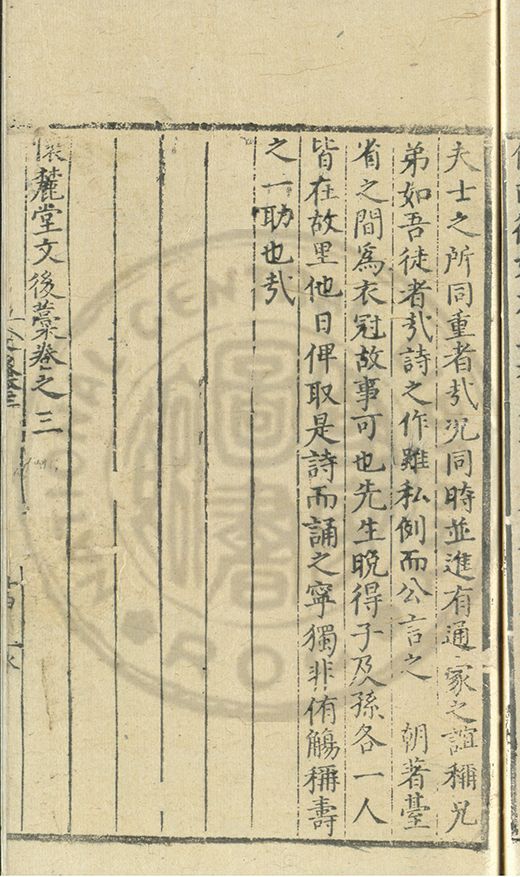 夫士之所同重者㢤況同時並進有通家之誼稱兄
弟如吾徒者㢤詩之作雖私例而公言之　朝著臺
省之間爲衣冠故事可也先生晚得子及孫各一人
皆在故里他日俾取是詩而誦之寧獨非侑觴稱壽
之一助也㢤
懷麓堂文後藁卷之三